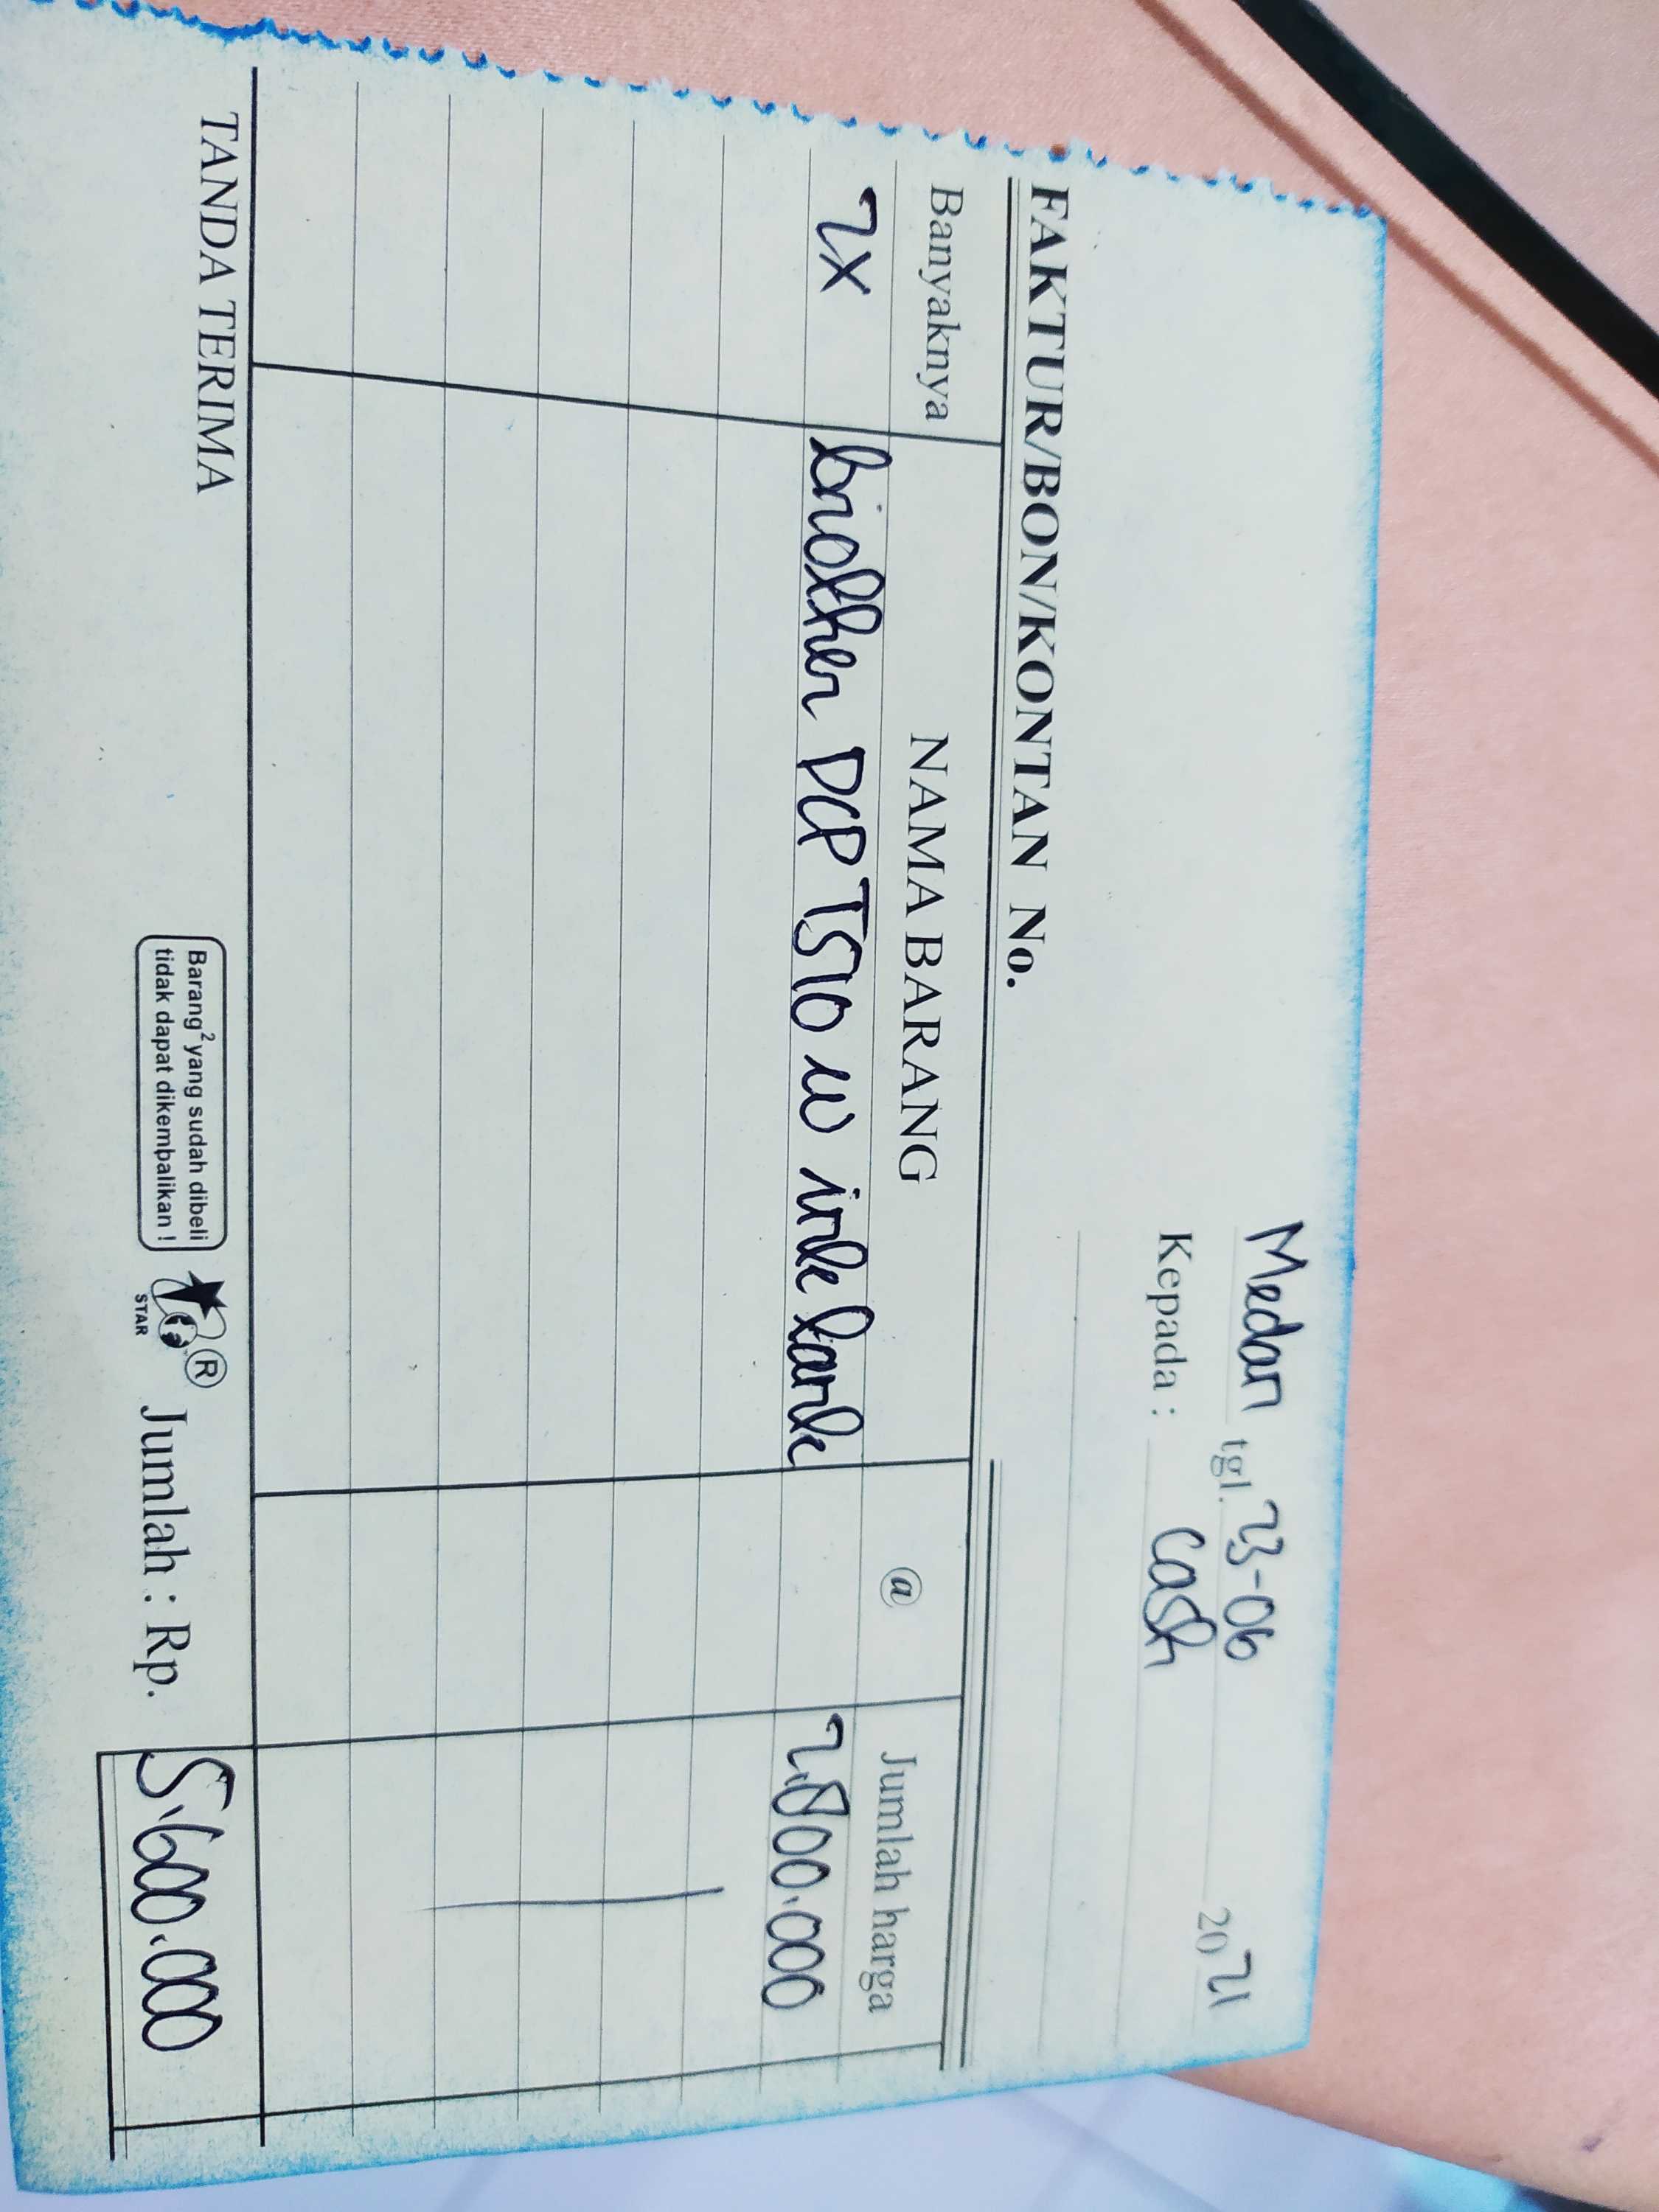 Medan tgl. 23-06 2021
Kepada : cash
FAKTUR/BON/KONTAN No.
Banyaknya NAMA BARANG @ Jumlah harga
2x brother DCP T510 w ink tank 2.800.000
TANDA TERIMA
Barang² yang sudah dibeli
tidak dapat dikembalikan !
STAR ®
Jumlah : Rp. 5.600.000